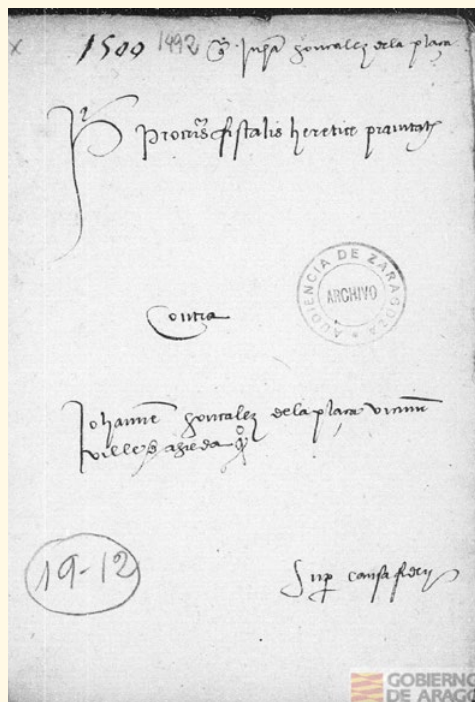 x 1500 1492 Juan gonzalez dela plaça
Procuris fiscalis heretice pravitatis
AUDIENCIA DE ZARAGOZA
ARCHIVO
Contra
Johannem gonzalez dela plaça vicinum
ville
19-12
Sup causa fidey
GOBIERNO
DE ARAGO